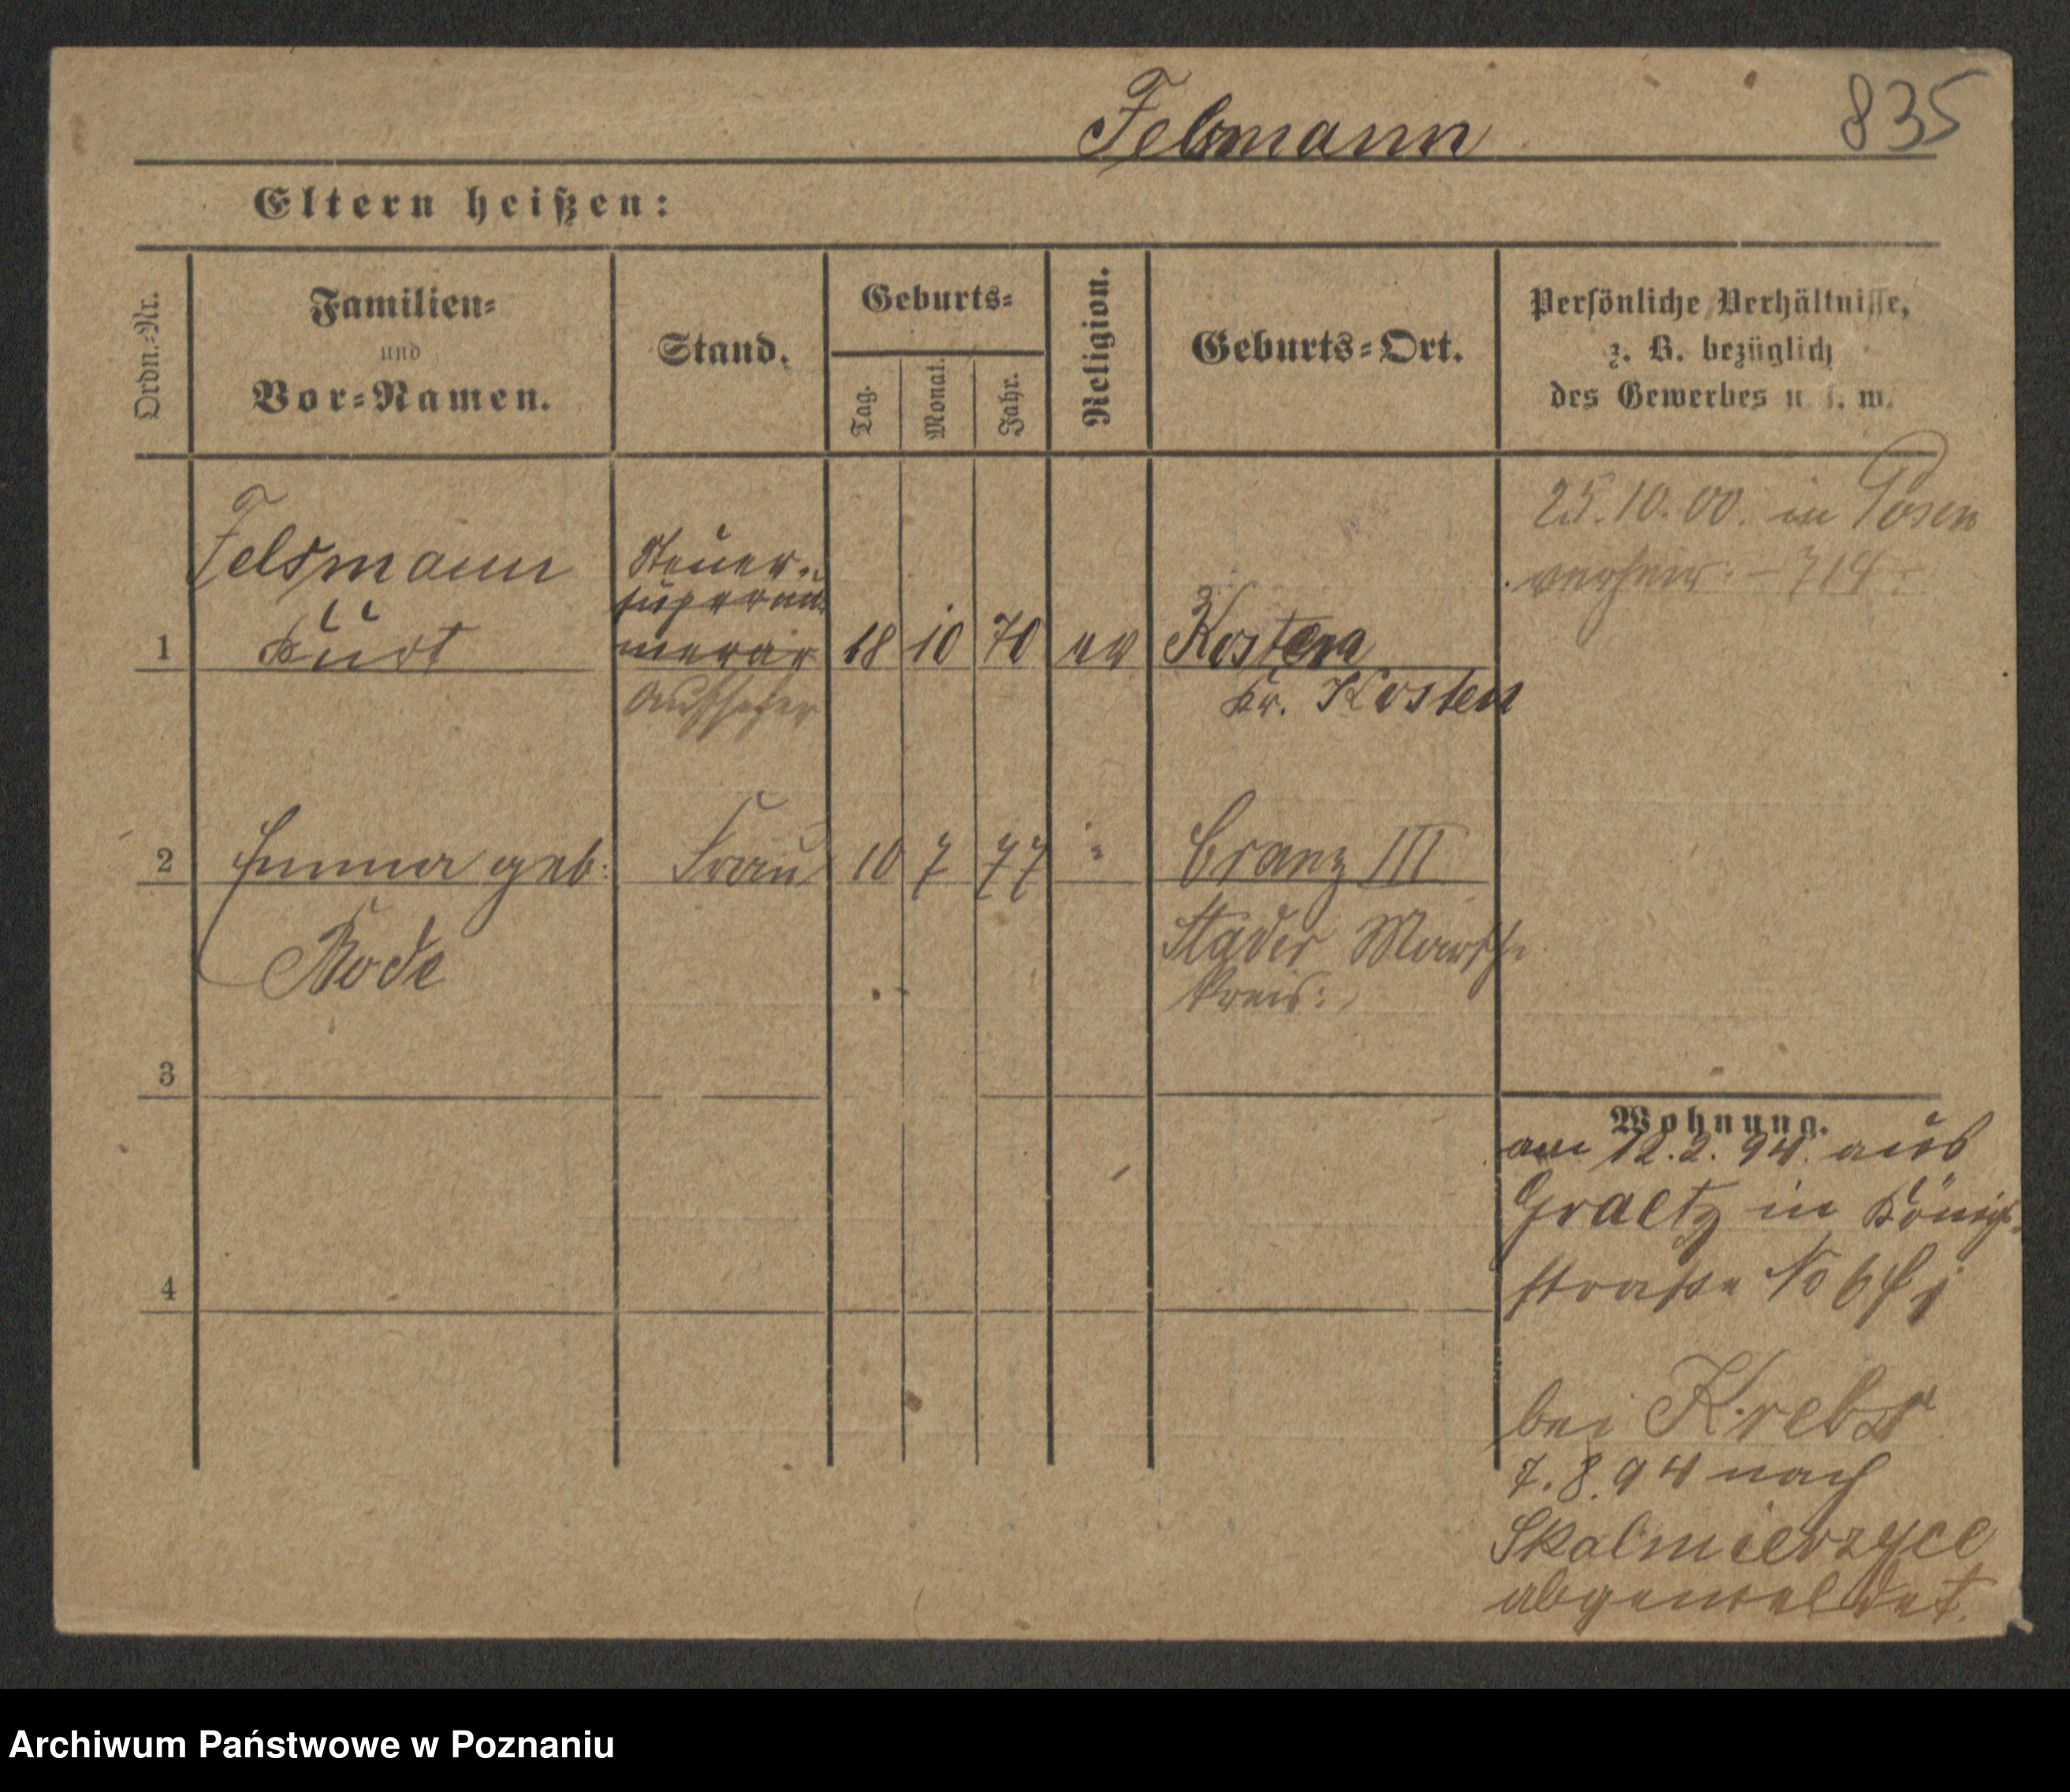 835
Felsmann
Eltern heißen:
Ordn.-Nr.
Familien-
und
Vor-Namen.
Stand.
Geburts-
Tag.
Monat.
Jahr.
Religion.
Geburts-Ort.
Persönliche Verhältnisse,
z. B. bezüglich
des Gewerbes u. s. w.
25.10.00. in Posen
verheir. - 714 -
1
Felsmann
Kurt
Steuer-
supernu-
merar
Aufseher
18 10 70 ev
Kosten
Kr. Kosten
2
Emma geb.
Bode
Frau
10 7 77 "
Cranz III
Stader Marsch
Kreis.
3
4
Wohnung.
am 12.2.94. aus
Graetz in König-
straße No 6
bei Krebs
7.8.94 nach
Skalmierzyce
abgemeldet.
Archiwum Państwowe w Poznaniu